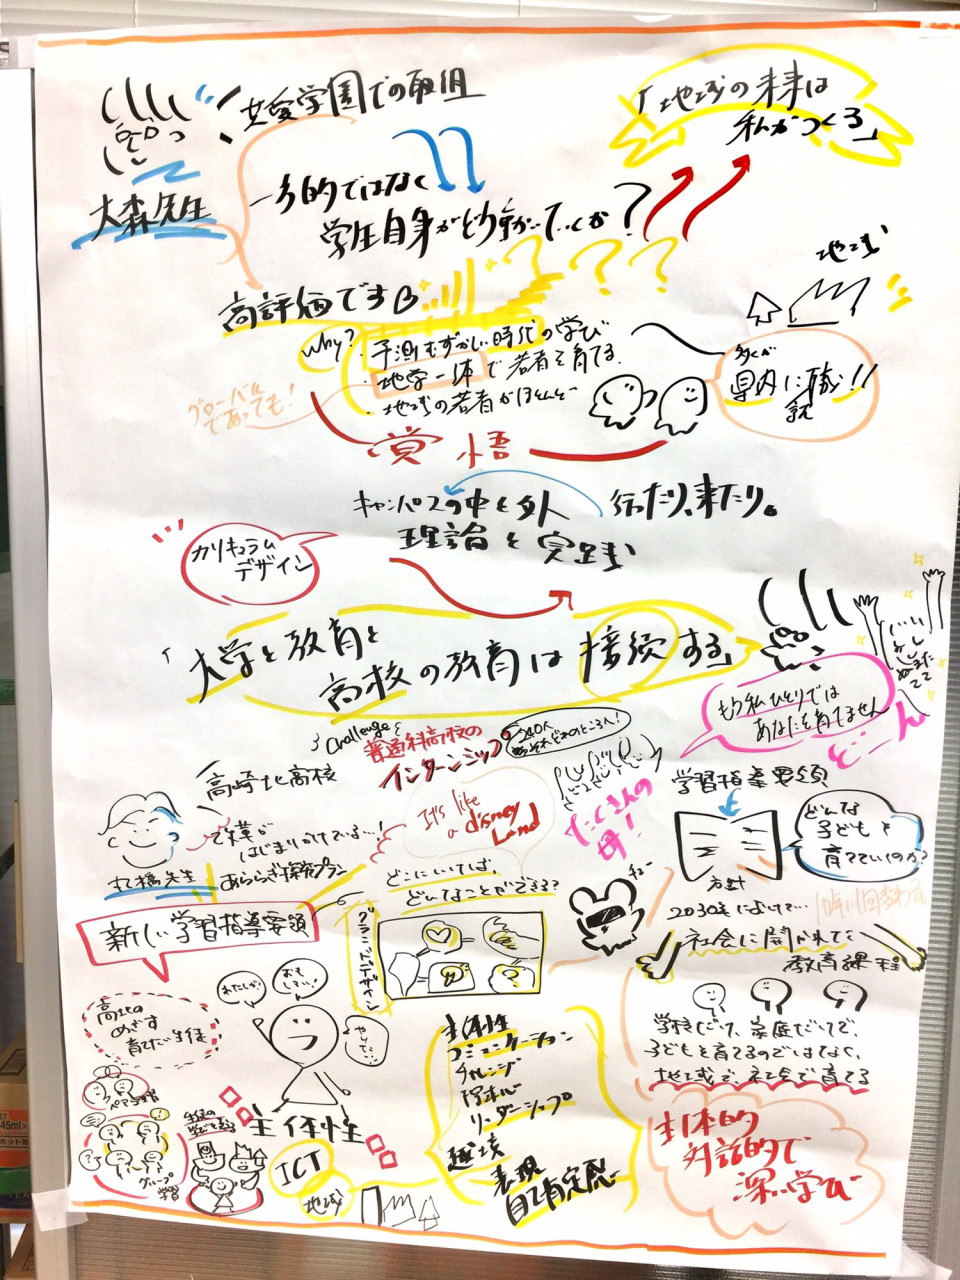 共愛学園での取組
大森先生
「地域の未来は
私がつくる」
一方的ではなく
学生自身がどう動いていくか?
???
高評価です
地域
Why?
・予測むずかしい時代の学び
・地学一体で若者を育てる
・地域の若者がほとんど
グローバル
であっても!
多くが
県内に就職!!
覚悟
キャンパスの中と外 行ったり、来たり。
理論と実践
カリキュラム
デザイン
「大学と教育と
高校の教育は接続する」
もう私ひとりでは
あなたを育てません
どーん
Challenge
普通科高校の
インターンシップ
240人
たくさんの
母!
高崎北高校
改革が
はじまりかけている…!
あららぎ探究プラン
It's like
a disney
Land
どこにいけば、
どんなことができる?
新しい学習指導要領
グランドデザイン
学習指導要領
方針
どんな
子どもを
育てていくのか?
2030年にむけて…
社会に開かれた
教育課程
学校だけ、家庭だけで、
子どもを育てるのではなく、
地域で、社会で育てる
主体的
対話的で
深い学び
高北の
めざす
育てたい生徒
わたしが!
おも
しろい!
やってい
ペア学習
グループ
学習
主体性
ICT
地域
主体性
コミュニケーション
チャレンジ
探求心
リーダーシップ
越境
表現
自己肯定感